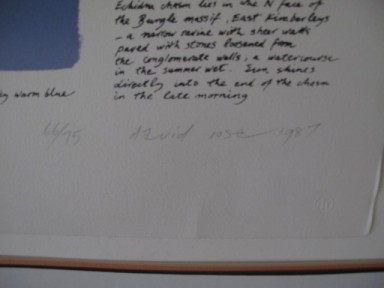 Echidna chasm lies in the N face of
the Bungle massif, East Kimberleys
- a narrow ravine with sheer walls
paved with stones loosened from
the conglomerate walls, a watercourse
in the summer wet. Sun shines
directly into the end of the chasm
in the late morning
warm blue
david rose 1987